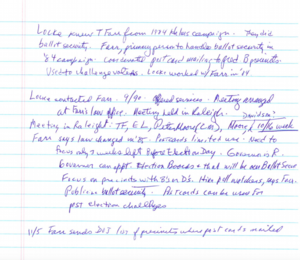 Locke knew T. Farr from 1984 Helms campaign. They did
ballot security. Farr, primary person to handle ballot security in
'84 campaign. Coordinated post card mailing to
Used to challenge voters. Locke worked w/ Farr in '84

Locke contacted Farr 9/90. services. Meeting arranged
at Farr's law office. Meeting held in Raleigh.
Meeting in Raleigh: TF, E L, 10/16 week
Farr says law changed in Postcards limited use. Need to
Focus only 3 weeks left before Election Day. Governor is R.
Governor can appt. Election Boards + that will be our Ballot Secur
Focus on precincts with 85% or D's. Hire poll watchers, says Farr.
Publicize ballot security. Post cards can be used for
post election challenges

11/5 Farr sends DOJ list of precincts where post cards mailed